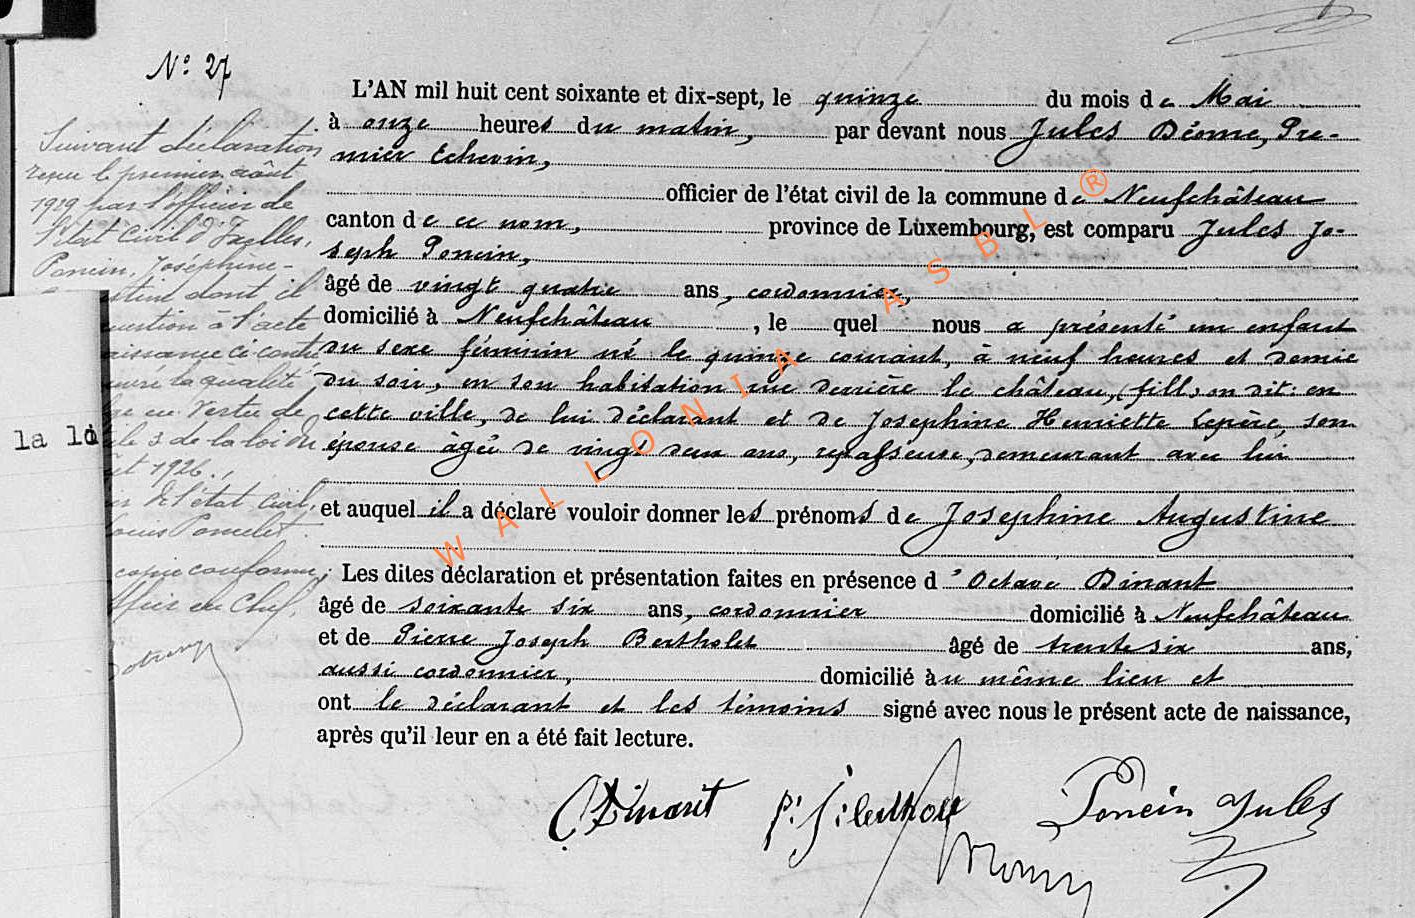 N° 27
L'AN mil huit cent soixante et dix-sept, le quinze du mois de Mai
à onze heures du matin, par devant nous Jules Déome, Pre-
mier Echevin,
officier de l'état civil de la commune de Neufchâteau
canton de ce nom, province de Luxembourg, est comparu Jules Jo-
seph Poncin,
âgé de vingt quatre ans, cordonnier,
domicilié à Neufchâteau, le quel nous a présenté un enfant
du sexe féminin né le quinze courant, à neuf heures et demie
du soir, en son habitation rue derrière le château, (fill) on dit: en
cette ville, de lui déclarant et de Josephine Henriette Lepère, son
épouse âgée de vingt deux ans, repasseuse, demeurant avec lui
et auquel il a déclaré vouloir donner les prénoms de Josephine Augustine
Les dites déclaration et présentation faites en présence d'Octave Dinant
âgé de soixante six ans, cordonnier domicilié à Neufchâteau
et de Pierre Joseph Bertholet âgé de trente six ans,
aussi cordonnier, domicilié au même lieu et
ont le déclarant et les témoins signé avec nous le présent acte de naissance,
après qu'il leur en a été fait lecture.
O Dinant P. J. Bertholet Poncin Jules
Suivant déclaration
reçue le premier août
1929 par l'officier de
l'état civil d'Ixelles,
Poncin, Joséphine-
dont il
question à l'acte
naissance ci-contre
la qualité
en vertu de
de la loi du
1926.
de l'état civil,
copie conforme,
en Chef,
la loi
WALLONIA ASBL ®